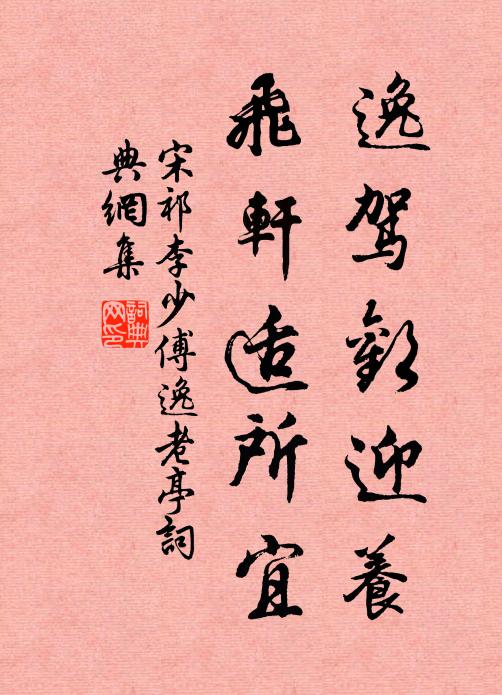 逸驾歡迎養
飛軒适所宜
宋祁李少傅逸老亭詞
典網集
詞典
网印